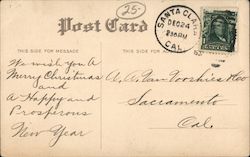 25-
Post Card
THIS SIDE FOR MESSAGE
THIS SIDE FOR
SANTA CLARA
DEC 24
CAL.
We wish you A
Merry Christmas
and
A Happy and
Prosperous
New Year
A. A. Van Voorhies & Co
Sacramento
Cal.